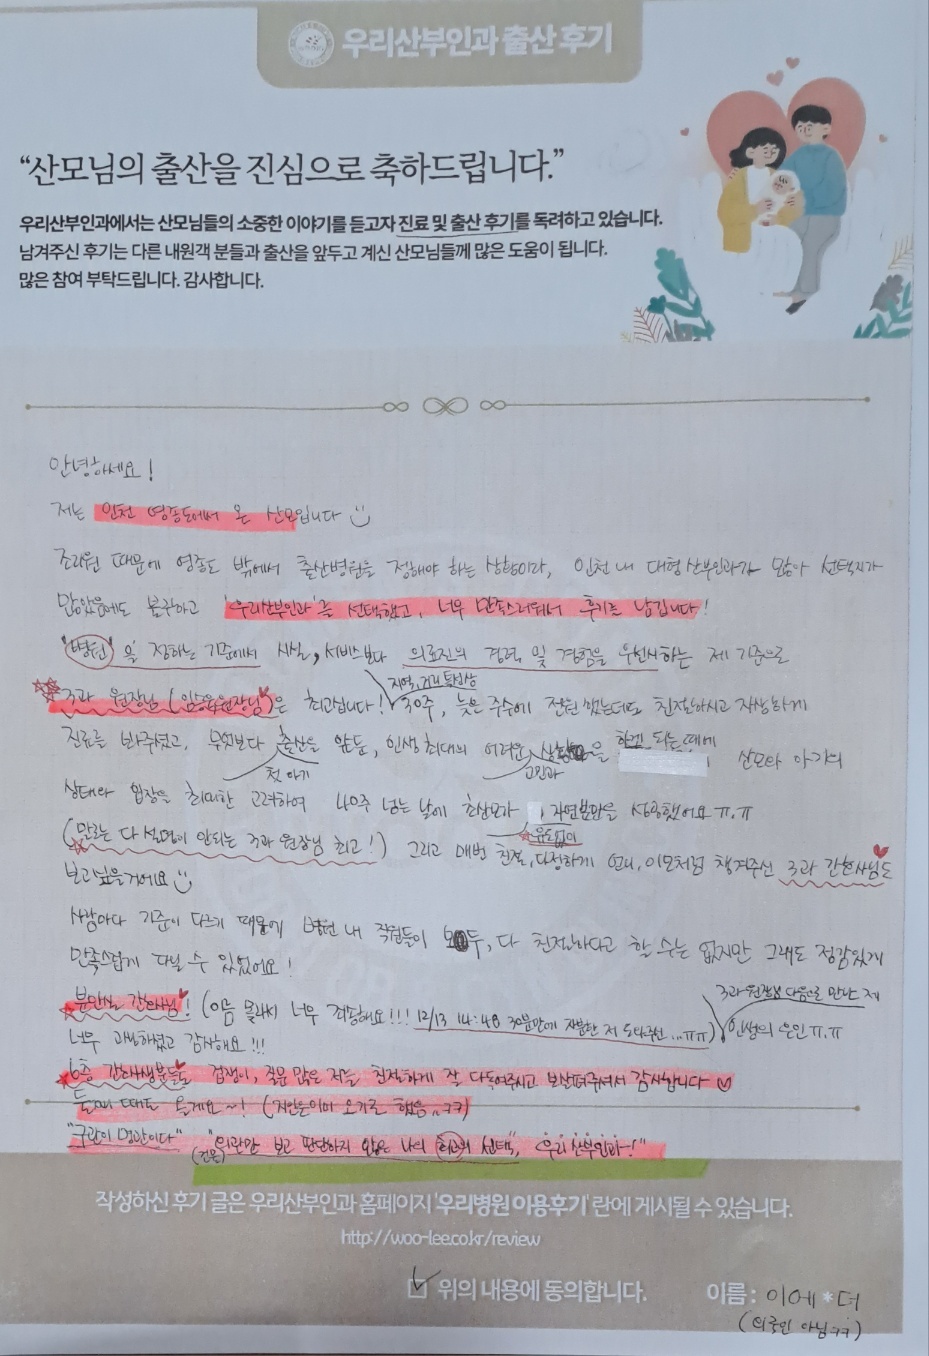 우리산부인과 출산 후기
“산모님의 출산을 진심으로 축하드립니다.”
우리산부인과에서는 산모님들의 소중한 이야기를 듣고자 진료 및 출산 후기를 독려하고 있습니다.
남겨주신 후기는 다른 내원객 분들과 출산을 앞두고 계신 산모님들께 많은 도움이 됩니다.
많은 참여 부탁드립니다. 감사합니다.
안녕하세요!
저는 인천 영종도에서 온 산모입니다
조리원 때문에 영종도 밖에서 출산병원을 정해야 하는 상황이라, 인천 내 대형 산부인과가 많아 선택지가
많았음에도 불구하고 '우리산부인과'를 선택했고, 너무 만족스러워서 후기를 남깁니다!
"병원"을 정하는 기준에서 사실, 서비스보다 의료진의 경력 및 경험을 우선시하는 제 기준으로
지역, 거리 특성상
3과 원장님 은 최고입니다! 30주, 늦은 주수에 전원 했는데도 친절하시고 자상하게
진료를 봐주셨고, 무엇보다 출산을 앞둔, 인생 최대의 어려운 상황을 하게 되는데에 산모와 아기의
첫 아기
고민과
상태와 입장을 최대한 고려하여 40주 넘는 날에 초산모가 , 자연분만을 성공했어요 ㅠ.ㅠ
유도없이
(말로는 다 설명이 안되는 3과 원장님 최고!) 그리고 매번 친절, 다정하게 언니, 이모처럼 챙겨주신 3과 간호사님도
보고싶을거에요
사람마다 기준이 다르기 때문에 병원 내 직원들이 모두, 다 친절하다고 할 수는 없지만 그래도 정감있게
만족스럽게 다닐 수 있었어요!
3과 원장님 다음으로 만난 제
분만실 간호사님! (이름 몰라서 너무 걱정해요!!! 12/13 14:48 30분만에 자분한 저 도와주신...ㅠㅠ) 인생의 은인 ㅠ.ㅠ
너무 고마웠고 감사해요!!!
6층 간호사생분들도 겁쟁이, 질문 많은 저를 친절하게 잘 다독여주시고 보살펴주셔서 감사합니다
둘째 때도 올게요~! (지인들이미 오기로 했음..ㅋㅋ)
"구관이 명관이다" "외관만 보고 판단하지 않은 나의 최고의 선택, 우리산부인과~!"
(건물)
작성하신 후기 글은 우리산부인과 홈페이지 '우리병원 이용후기' 란에 게시될 수 있습니다.
http://woo-lee.co.kr/review
위의 내용에 동의합니다. 이름 : 이에*더
(외국인 아님ㅋㅋ)